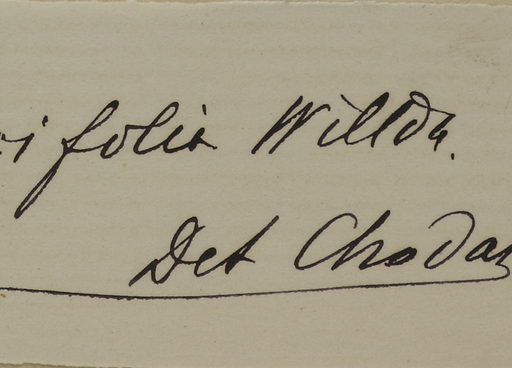 ifolia Willd.
Det Chodat